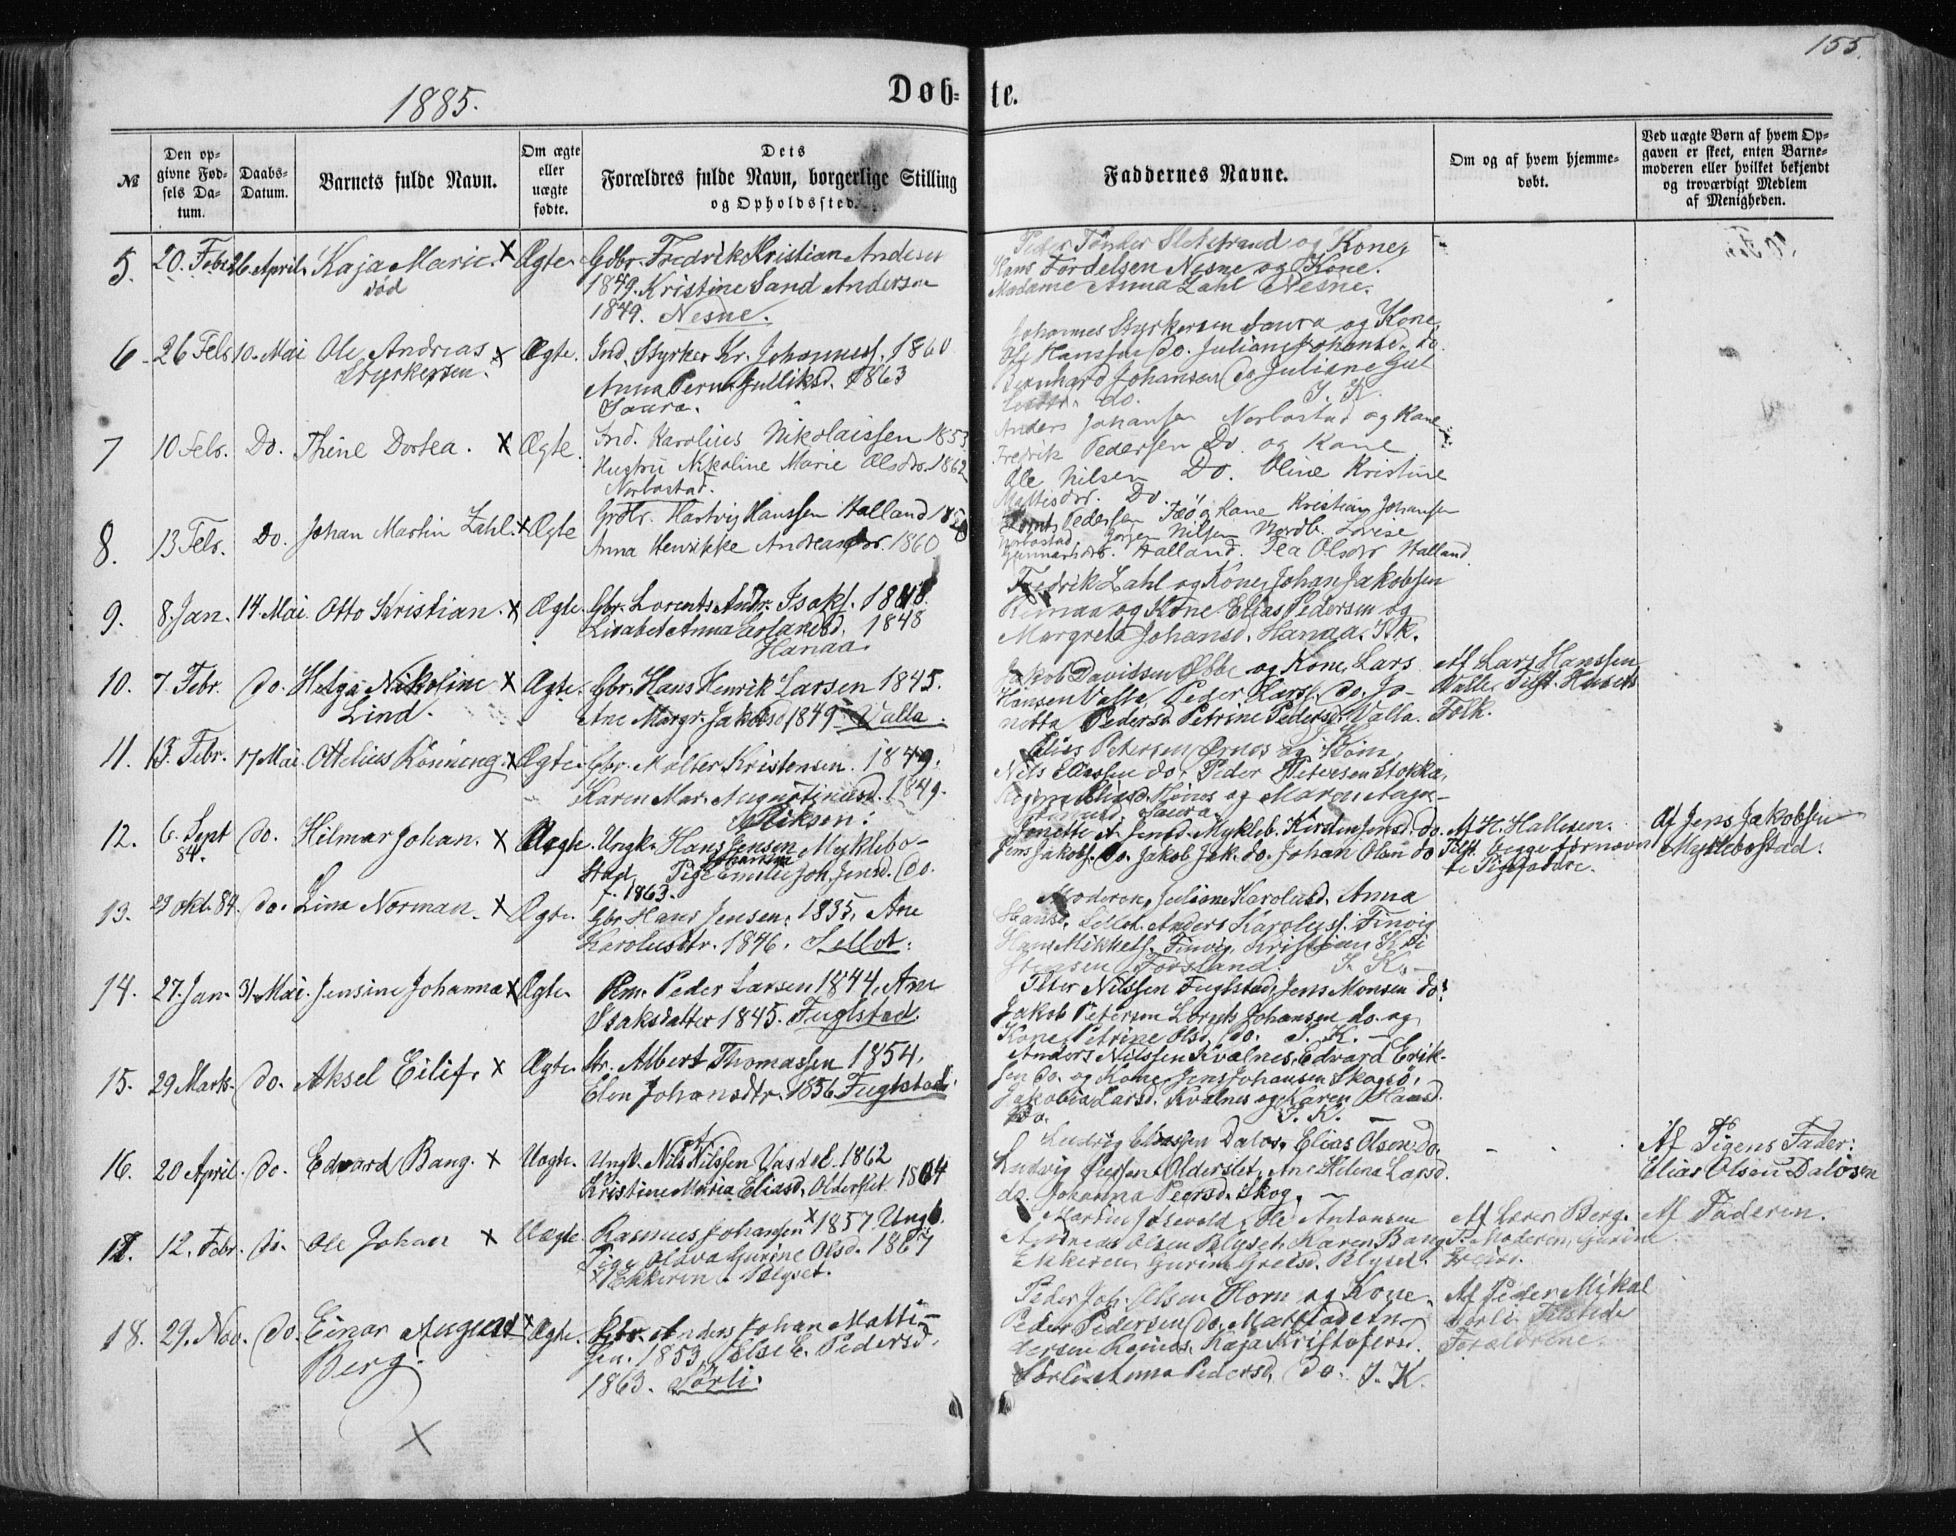 155.
1885.
Døb-
te.
№
Den op-
givne Fød-
sels Da-
tum.
Daabs-
Datum.
Barnets fulde Navn.
Om ægte
eller
uægte
fødte.
Dets
Forældres fulde Navn, borgerlige Stilling
og Opholdssted.
Faddernes Navne.
Om og af hvem hjemme-
døbt.
Ved uægte Børn af hvem Op-
gaven er skeet, enten Barne-
moderen eller hvilket bekjendt
og troværdigt Medlem
af Menigheden.
5. 20. Febr. 26 April. Kaja Marie. x Ægte.
død
Gdbr. Fredrik Kristian Andersen
1849. Kristine Sand Andersen
1849. Nesne.
Peder Tønder og Kone,
Hans Fordelsen Nesne og Kone.
Madame Anna Zahl Nesne.
6. 26 Feb. 10. Mai Ole Andreas x Ægte.
Styrkersen.
Ind. Styrker Kr. Johanness. 1860
Anna Gulliksd. 1863
Saura.
Johannes Styrkersen Saura og Kone,
Ole Hanssen do. do.
Bernhard Johansen do Juliane
do. I. K.
7 10 Feb. Do. Thine Dortea. x Ægte.
Ind. Karolius Nikolaissen 1853
Hustru Nikoline Marie Olsdr. 1862
Norbostad.
Anders Johansen Norbostad og Kone
Fredrik Pedersen Do og Kone
Ole Nilsen Do. Oline Kristine
Mattisdr. Do.
8. 13 Feb. Do. Johan Martin Zahl. x Ægte
Grdbr. Hartvig Hanssen Halland
Anna Henrikke Andreasdr. 1860
Pedersen og Kone Kristian Johansen
Norbostad. Nilsen Nordb. Lovise
Gunnarsdr. Halland. Tea Olsdr Halland
9. 8. Jan. 14 Mai. Otto Kristian. x Ægte.
Gbr. Lorents Andr. Isaks. 1848.
Lisabet Anna 1848
Hanaa.
Fredrik Zahl og Kone, Johan Jakobsen
og Kone Elias Pedersen og
Margreta Johansd. Hanaa. I. K.
10. 7. Febr. do. Helga Nikoline x Ægte.
Lind.
Gbr. Hans Henrik Larsen 1845.
Ane Margr. Jakobsd 1849. Valla.
Jakob Davidsen og Kone, Lars
Hansen Valla, Peder do. Jo-
netta Pedersd. Petrine Pedersd. Valla.
Af Lars Hanssen
Valle. Tilst. Husets
Folk.
11. 13. Febr. 17 Mai. Ottelius Rönning. x Ægte.
Gbr. Kristensen. 1849.
Karen Mar. Augustinusd. 1849.
Elias Petersen og
Nils Eliassen do. Peder Petersen Stokka,
Eliasd. og Maren
Saura.
12. 6. Sept do. Hilmar Johan. x Uægte.
84.
Ungk. Hans Jensen Myklebo-
stad, Pige Joh. Jensd. do.
f. 1863.
Jensd. Mykleb. Kirsten Jensd. do.
Jens Jakobs. do. Jakob Jak. do. Johan Olsen do
Af H. Hallesen.
Tilst. Begge fornævn
te Pigefadere.
Af Jens Jakobsen
Myklebostad.
13. 23 Okt. 84. do. Lina Norman. x Ægte.
Gbr. Hans Jensen. 1835, Ane
Karolusdtr. 1846.
Moderen, Juliane Karolusd. Anna
Hansd. Anders Karoluss. Finvig
Hans Mikkels. Finvig, Kristian Kri
stensen Forsland. I. K.
14. 27. Jan. 31. Mai. Jensine Johanna x Ægte.
Peder Larsen 1844, Ane
Isaksdatter 1845. Fuglstad.
Peter Nilssen Fuglstad, Jens Monsen do.
Jakob Petersen Johansen do. og
Kone, Petrine Olsd. do. I. K.
15. 29 Marts. do. Aksel Eilif. x Ægte.
Albert Thomassen 1854.
Elen Johansdtr. 1856. Fuglstad.
Anders Nilssen Kvalnes, Edvard Erik-
sen do. og Kone, Jens Johansen Skogsö,
Jakobia Larsd. Kvalnes og Karen Hansd.
Do. I. K.
16. 20 April. do. Edvard Bang. x Uægte.
Ungk. Nils Nilssen Vasdel. 1862
Kristine Maria Eliasd. Olderslet. 1864
Ludvig Dalos. Elias Olsen do.
Ludvig Olderslet, Ane Helena Larsd.
do. Johanna Peersd. Skog.
Af Pigens Fader:
Elias Olsen Dalosen
17. 12. Febr. do. Ole Johan x Uægte.
Rasmus Johansen x 1857. Ungk.
Pige Olava Gurine Olsd. 1867
x Ekkeren. Blyset.
Martin Ole Antonsen
Andreas Olsen Blyset, Karen Bang
Ekkeren, Gurine Blyset.
Af Lærer Berg.
T. Moderen, Gurine
Af Faderen.
18. 29. Nov. do. Einar August x Ægte.
Berg.
Gbr. Anders Johan Matti-
sen. 1853, Else E. Pedersd.
1863. Sörli.
Peder Joh. Olsen Horn og Kone,
Peder Pedersen do.
dersen Kaja Kristofersd.
Sörli Anna Pedersd. do. I. K.
Af Peder Mikal
Sörli. Tilstede
Forældrene.
x